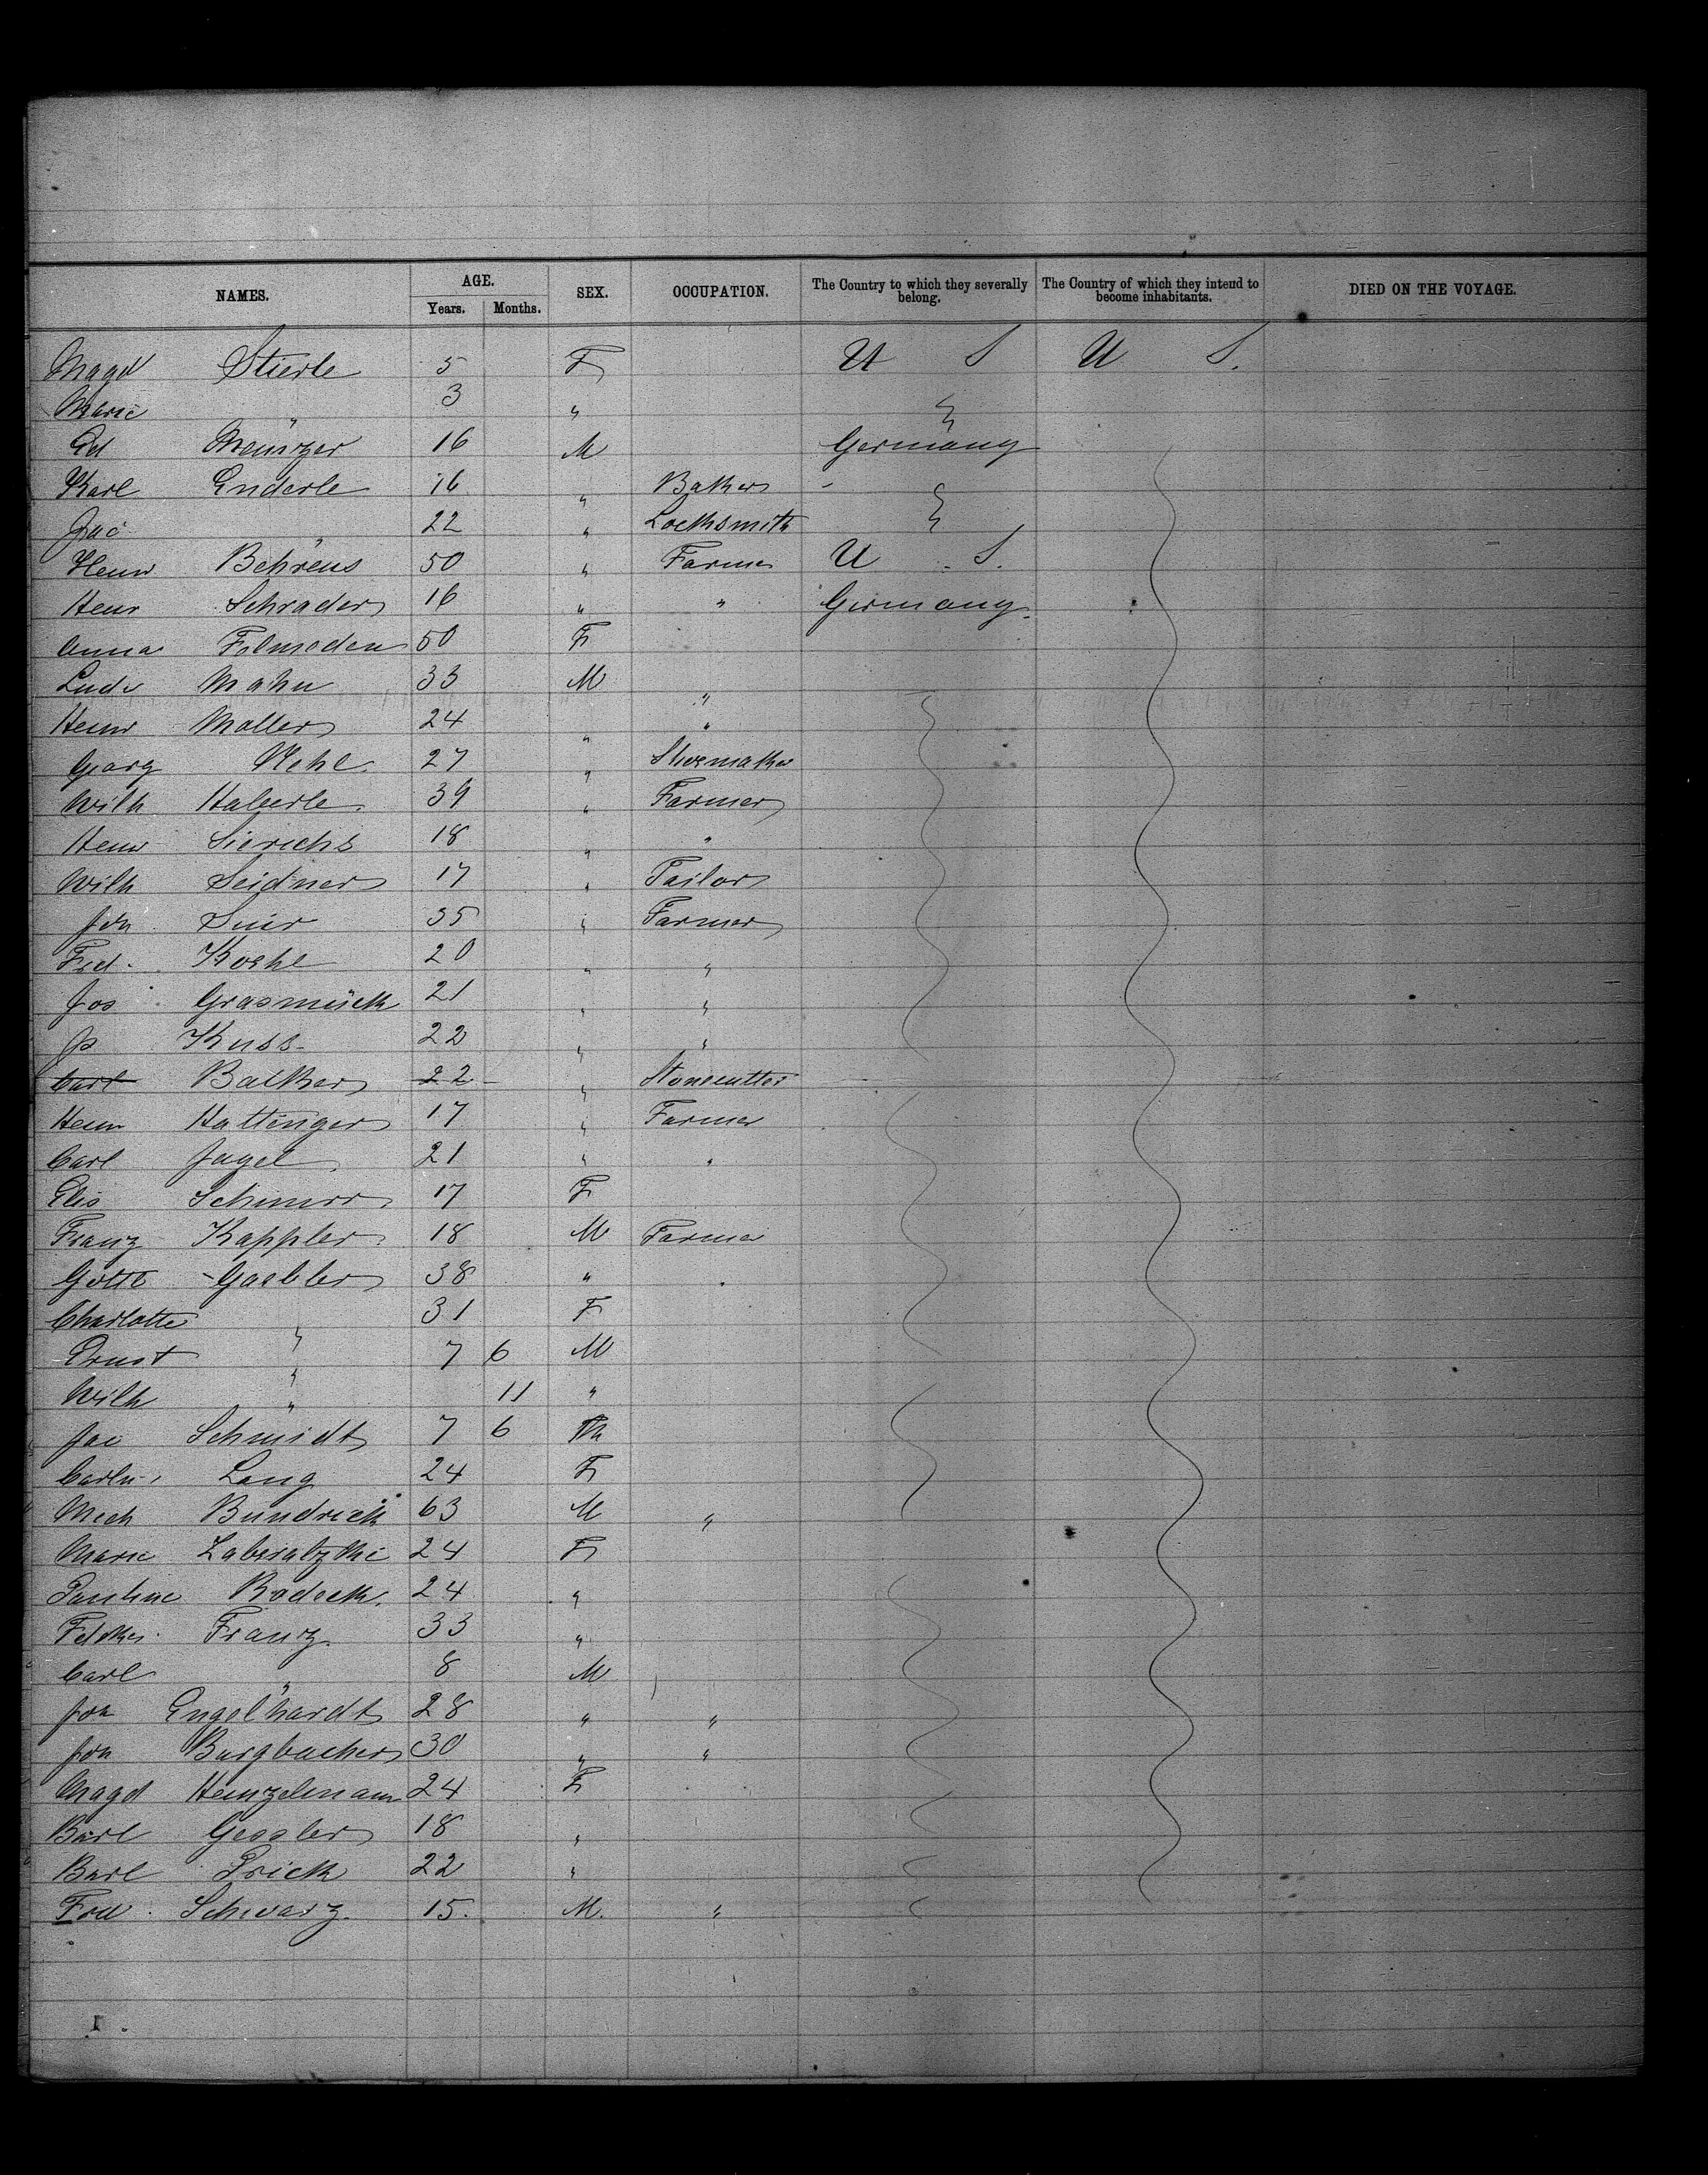 NAMES. AGE. SEX. OCCUPATION. The Country to which they severally belong. The Country of which they intend to become inhabitants. DIED ON THE VOYAGE.
Years. Months.
Magd Stierle 5 F U S U S.
Marie " 3 "
Ed 16 M Germany
Karl Enderle 16 " Baker
Jac " 22 " Locksmith
Henr Behrens 50 " Farmer U S.
Henr Schrader 16 " " Germany
Anna 50 F
Ludv Mahn 33 M "
Henr Moller 24 " "
Georg Kehl 27 " Shoemaker
Wilh Haberle 39 " Farmer
Henr Sierichs 18 " "
Wilh Seidner 17 " Tailor
Joh 35 " Farmer
Frd. Koehl 20 " "
Jos Grasmück 21 " "
Jo Kuss 22 " "
Carl Balker 22 " Stonecutter
Henr Hattinger 17 " Farmer
Carl Jagel 21 " "
Elis 17 F
Franz Kappler 18 M Farmer
Gottl Gaebler 38 " "
Charlotte " 31 F
Ernst " 7 6 M
Wilh " 11 "
Jac Schmidt 7 6 M
Lang 24 F
Mich Bundrick 63 M "
Marie 24 F
Pauline Radeck 24 "
Franz 33 "
Carl " 8 M
Joh Engelhardt 28 " "
Joh Burgbacher 30 " "
Magd Heinzelmann 24 F
Barl Gessler 18 "
Barl Frick 22 "
Schwarz 15. M. "